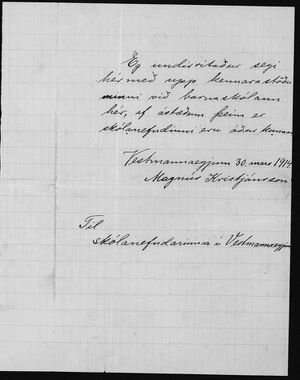 Eg undirritaður segi
hérmeð upp kennarastöðu
minni við barnaskólann
hér, af ástæðum þeim er
skólanefndinni eru áður kunnar
Vestmannaeyjum 30. mars 1914
Magnús Kristjánsson
Til
skólanefndarinnar í Vestmannaeyjum